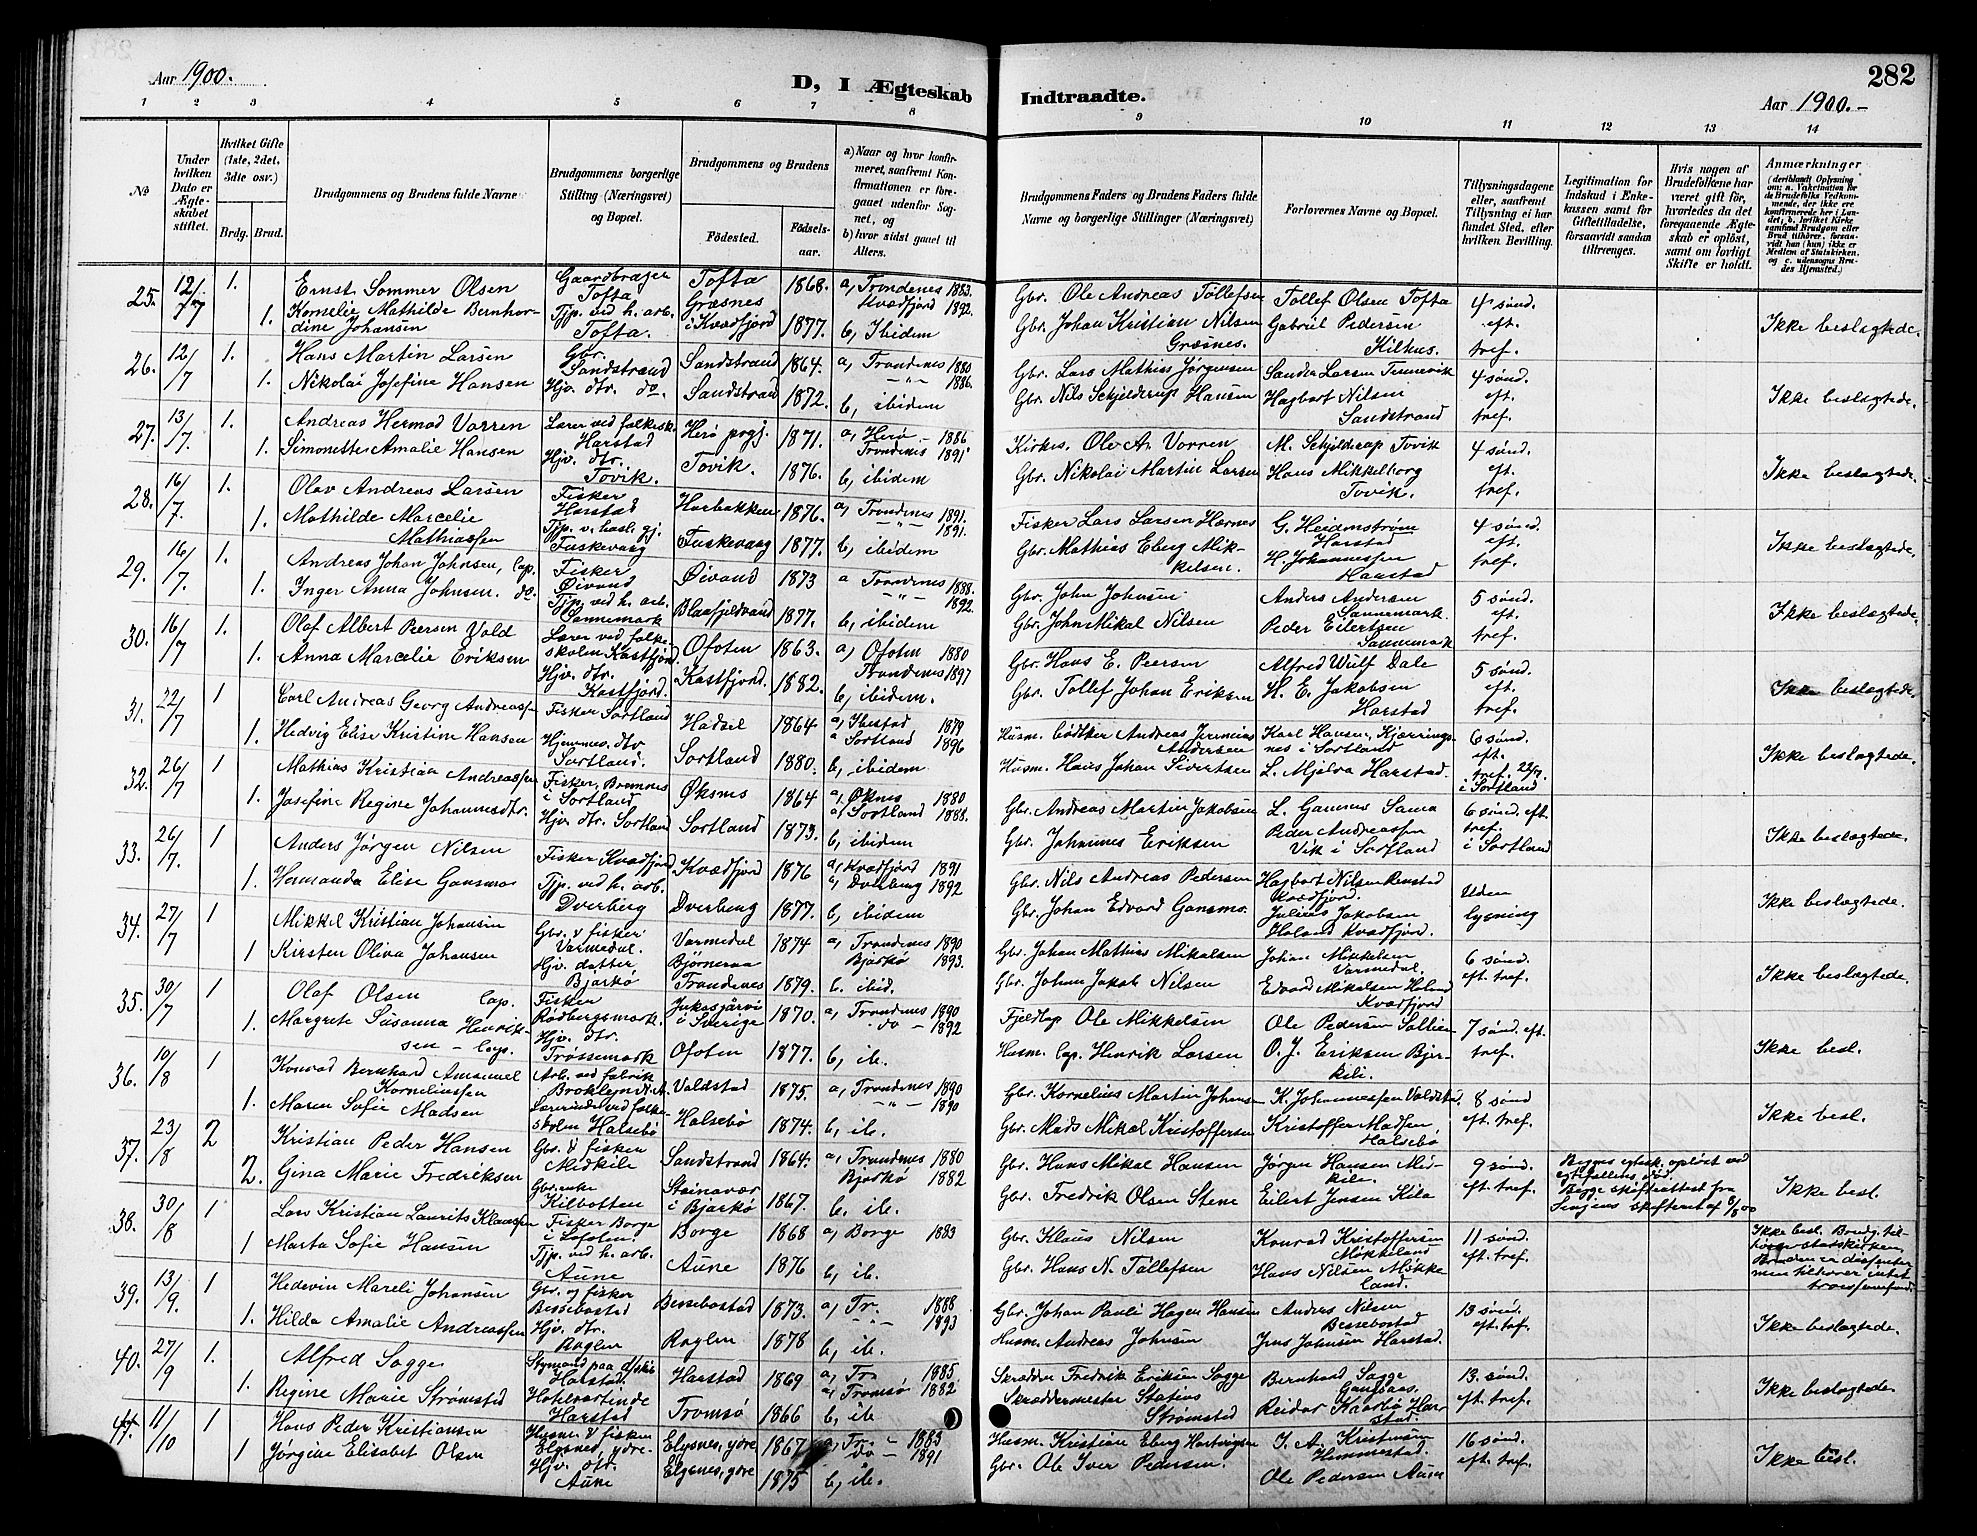 Aar 1900.
D, I Ægteskab Indtraadte.
282
Aar 1900.-
1 2 3 4 5 6 7 8 9 10 11 12 13 14
No
Under hvilken Dato er Ægteskabet stiftet.
Hvilket Gifte (1ste, 2det, 3dte osv.)
Brdg. Brud.
Brudgommens og Brudens fulde Navne
Brudgommens borgerlige Stilling (Næringsvei) og Bopæl.
Brudgommens og Brudens
Fødested. Fødselsaar.
a) Naar og hvor konfirmeret, saafremt Konfirmationen er foregaaet udenfor Sognet, og
b) hvor sidst gaaet til Alters.
Brudgommens Faders og Brudens Faders fulde Navne og borgerlige Stillinger (Næringsvei)
Forlovernes Navne og Bopæl.
Tillysningsdagene eller, saafremt Tillysning ei har fundet Sted, efter hvilken Bevilling.
Legitimation for Indskud i Enkekassen samt for Giftetilladelse, forsaavidt saadan tiltrænges.
Hvis nogen af Brudefolkene har været gift før, hvorledes da det foregaaende Ægteskab er opløst, samt om lovligt Skifte er holdt.
Anmærkninger
25. 12/7 1. Ernst Sommer Olsen Gaardbruger Tofta Tofta 1868. a, Trondenes 1883. Gbr. Ole Andreas Tollefsen Tollef Olsen Tofta 4 sønd. eft. tref. Ikke beslagtede.
1. Kornelie Mathilde Bernhardine Johansen Tjp. ved h. arb. Tofta. Græsnes i Kvædfjord 1877. Kvædfjord 1892. b, Ibidem Gbr. Johan Kristian Nilsen Græsnes. Gabriel Pedersen Kilhus.
26. 12/7 1. Hans Martin Larsen Gbr. Sandstrand Sandstrand 1864. a, Trondenes 1880 Gbr. Lars Mathias Jørgensen Sander Larsen Tennevik 4 sønd. eft. tref. Ikke beslagtede.
1. Nikolai Josefine Hansen Hjv. dtr. do. Sandstrand 1872. -"- 1886. b, ibidem Gbr. Nils Schjelderup Hansen Hagbart Nilsen Sandstrand
27. 13/7. 1. Andreas Hermod Vorren Lærer ved folkesk. Harstad Herø prgj. 1871. a, Herø - 1886 Kirkes. Ole A. Vorren M. Schjelderup Tovik 4 sønd. eft. tref. Ikke beslagtede.
1. Simonette Amalie Hansen Hjv. dtr. Tovik. Tovik. 1876. Trondenes 1891 b, ibidem Gbr. Nikolai Martin Larsen Hans Mikkelborg Tovik.
28. 16/7. 1. Olav Andreas Larsen Fisker Harstad Harbakken 1876. a, Trondenes 1891. Fisker Lars Larsen Hærnes G. Heidmstrøm Harstad 4 sønd. eft. tref. Ikke beslagtede.
1. Mathilde Marcelie Mathiassen Fuskevaag Fuskevaag 1877. -"- 1891. b, ibidem Gbr. Mathias Eberg Mikkelsen. H. Johannessen Harstad
29. 16/7. 1. Andreas Johan Johnsen, lap. Fisker Øivand Øivand 1873 a Trondenes 1888. Gbr. John Johnsen Anders Andersen Sannemark. 5 sønd. eft. tref. Ikke beslagtede.
1. Inger Anna Johnsen. do. Tjp. ved h. arb. Sannemark Blaafjeldvand 1877. -"- 1892. b, ibidem Gbr. John Mikal Nilsen Peder Eilertsen Sannemark
30. 16/7 1. Olaf Albert Peersen Vold Lærer ved folkeskolen Kastfjord. Ofoten 1863. a) Ofoten 1880 Gbr. Hans E. Peersen Alfred Wulf Dale 5 sønd. eft. tref. Ikke beslagtede.
1. Anna Marcelie Eriksen Hjv. dtr. Kastfjord. Kastfjord. 1882. Trondenes 1897 b, ibidem. Gbr. Tollef Johan Eriksen H. E. Jakobsen Harstad
31. 22/7 1 Carl Andreas Georg Andreassen Fisker Sortland Hadsel 1864 a, Ibestad 1879 Husm. bødtker Andreas Jeremias Andersen Karl Hansen, Kjerringnes i Sortland 6 sønd. eft. tref. 22/7. i Sortland Ikke beslagtede.
1. Hedvig Elise Kristine Hansen Hjemmev. dtr. Sortland. Sortland 1880. a Sortland 1896 b, ibidem Husm. Hans Johan Sivertsen L. Mjelva Harstad.
32. 26/7 1 Mathias Kristian Andreassen Fisker, Bremnes i Sortland Øksnes 1864 a, Øknes 1880 Gbr. Andreas Martin Jakobsen L. Gamnes Sama 6 sønd. eft. tref. i Sortland Ikke beslagtede.
1. Josefine Regine Johannesdtr. Hjv. dtr. Sortland Sortland 1873. a, Sortland 1888. b, ibidem Gbr. Johannes Eriksen Peder Andreassen Vik i Sortland
33. 26/7. 1 Anders Jørgen Nilsen Fisker Kvædfjord Kvædfjord 1876 a, Kvædfjord 1891 Gbr. Nils Andreas Pedersen Hagbart Nilsen Renstad Kvædfjord. Uden lysning Ikke beslagtede.
1. Hermanda Elise Gansmo Tjp. ved h. arb. Dverberg Dverberg 1877. a, Dverberg 1892 b, ibidem Gbr. Johan Edvard Gansmo. Julius Jakobsen Holand Kvædfjord.
34. 27/7 1 Mikkel Kristian Johansen Gbr. & fisker Varmedal. Varmedal 1874 a, Trondenes 1890 Gbr. Johan Mathias Mikalsen Johan Mikkelsen Varmedal. 6 sønd. eft. tref. Ikke beslagtede.
1 Kirsten Oliva Johansen Hjv. datter Bjarkø Bjørneraa Trondenes 1879. Bjarkø 1893. b. ibid. Gbr. Johan Jakob Nilsen Edvard Mikalsen Holand Kvædfjord
35. 30/7 1 Olaf Olsen lap. Fisker Rødbergsmark. Jukasjärvi i Sverige 1870. a, Trondenes 1890 Fjeldlap Ole Mikkelsen Ole Pedersen Sollien 7 sønd. eft. tref. Ikke besl.
1. Margrete Susanna Henriksen - lap. Hjv. dtr. Trøssemark Ofoten 1877. do - 1892 b, ib. Husm. lap. Henrik Larsen O. J. Eriksen Bjerkeli.
36. 10/8 1 Konrad Bernhard Amanuel Korneliussen Arb. ved fabrik Broklyn N. A. Valdstad 1875. a, Trondenes 1890 Gbr. Kornelius Martin Johansen K. Johannessen Valdstad 8 sønd eft. tref. Ikke besl.
1. Maren Sofie Madsen Lærerinde ved folkeskolen Halsebø Halsebø 1874. -"- 1890 b, ib. Gbr. Mads Mikal Kristoffersen Kristoffer Madsen, Halsebø
37. 23/8 2 Kristian Peder Hansen Gbr. & fisker Midkile Sandstrand 1864. a, Trondenes 1880 Gbr. Hans Mikal Hansen Jørgen Hansen Midkile. 9 sønd. eft. tref. Begges egtesk. opløst ved egtefællens død. Begge skifteattest fra Senjens skifteret af 8/8 00 Ikke besl.
2. Gina Marie Fredriksen Gbr.enke Kilbotten Steinavær i Bjarkø 1867. Bjarkø 1882 b, ib. Gbr. Fredrik Olsen Stene Eilert Jensen Kila
38. 30/8 1 Lars Kristian Laurits Klaussen Fisker Borge i Lofoten. Borge 1868 a, Borge 1883 Gbr. Klaus Nilsen Konrad Kristoffersen Møkkeland 11 sønd. eft. tref. Ikke besl. Brudg. tilhører statskirken, Bruden er dissenter men tilhører intet trossamfund.
1 Marta Sofie Hansen Tjp. ved h. arb. Aune Aune 1876 b, ib. Gbr. Hans N. Tollefsen Hans Nilsen Møkkeland.
39. 13/9. 1 Hedevin Mareli Johansen Gbr. og fisker Bessebostad Bessebostad 1873. a, Tr. 1888 Gbr. Johan Pauli Hagen Hansen Anders Nilsen Bessebostad 13 sønd. eft. tref. Ikke beslagtede.
1. Hilda Amalie Andreassen Hjv. dtr. Røglen Røglen 1878 -"- 1893 b, ib. Husm. Andreas Johnsen Jens Johnsen Harstad.
40. 27/9 1. Alfred Sagge Styrmand paa d/skib Harstad. Harstad 1869 a, Tr. 1885 Skrædder Fredrik Eriksen Sagge Bernhard Sagge Gansaas. 13. sønd. eft. tref. Ikke beslagtede
1. Regine Marie Strømsted Hotelvertinde Harstad Tromsø 1866 a, Tromsø 1882 b, ib Skræddermester Statius Strømsted Reidar Kaarbø Harstad.
41. 11/10 1 Hans Peder Kristiansen Husm & fisker Elgsnes, ydre. Elgsnes, ydre 1867 a, Tr. - 1883 Husm. Kristian Eberg Hartvigsen J. A. Kristensen Hemmestad. 16 sønd. eft. tref. Ikke besl.
1 Jørgine Elisabet Olsen Hjv. dtr. Aune Elgsnes, ydre 1875 do - 1891 b, ib. Gbr. Ole Iver Pedersen. Ole Pedersen Aune